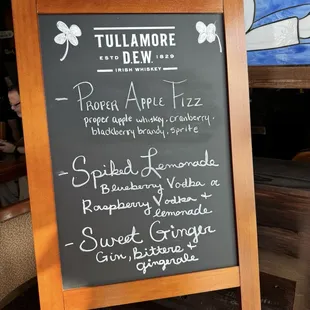 TULLAMORE
D.E.W.
ESTD 1829
IRISH WHISKEY
- Proper Apple Fizz
proper apple whiskey, cranberry,
blackberry brandy, sprite
- Spiked Lemonade
Blueberry Vodka or
Raspberry Vodka +
lemonade
- Sweet Ginger
Gin, Bitters +
gingerale